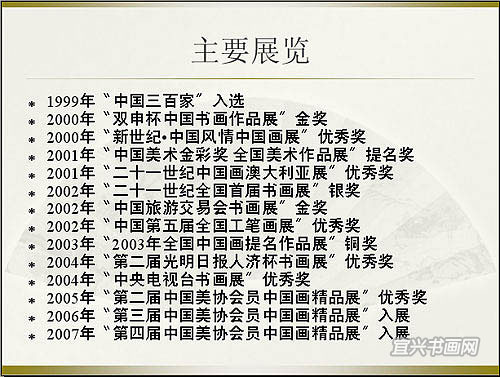 主要展览
* 1999年“中国三百家”入选
* 2000年“双申杯中国书画作品展”金奖
* 2000年“新世纪·中国风情中国画展”优秀奖
* 2001年“中国美术金彩奖 全国美术作品展”提名奖
* 2001年“二十一世纪中国画澳大利亚展”优秀奖
* 2002年“二十一世纪全国首届书画展”银奖
* 2002年“中国旅游交易会书画展”金奖
* 2002年“中国第五届全国工笔画展”优秀奖
* 2003年“2003年全国中国画提名作品展”铜奖
* 2004年“第二届光明日报人济杯书画展”优秀奖
* 2004年“中央电视台书画展”优秀奖
* 2005年“第二届中国美协会员中国画精品展”优秀奖
* 2006年“第三届中国美协会员中国画精品展”入展
* 2007年“第四届中国美协会员中国画精品展”入展
宜兴书画网